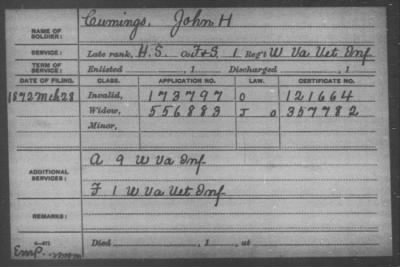 NAME OF SOLDIER: Cumings, John H
SERVICE: Late rank, H.S. Co. F+S. 1 Reg't W Va Vet Inf
TERM OF SERVICE: Enlisted , 1 Discharged , 1
DATE OF FILING. CLASS. APPLICATION NO. LAW. CERTIFICATE NO.
1872 Mch 28 Invalid, 173797 O 121664
Widow, 556883 J O 357782
Minor,
ADDITIONAL SERVICES: A 9 W Va Inf
F 1 W Va Vet Inf
REMARKS:
Died , 1 , at